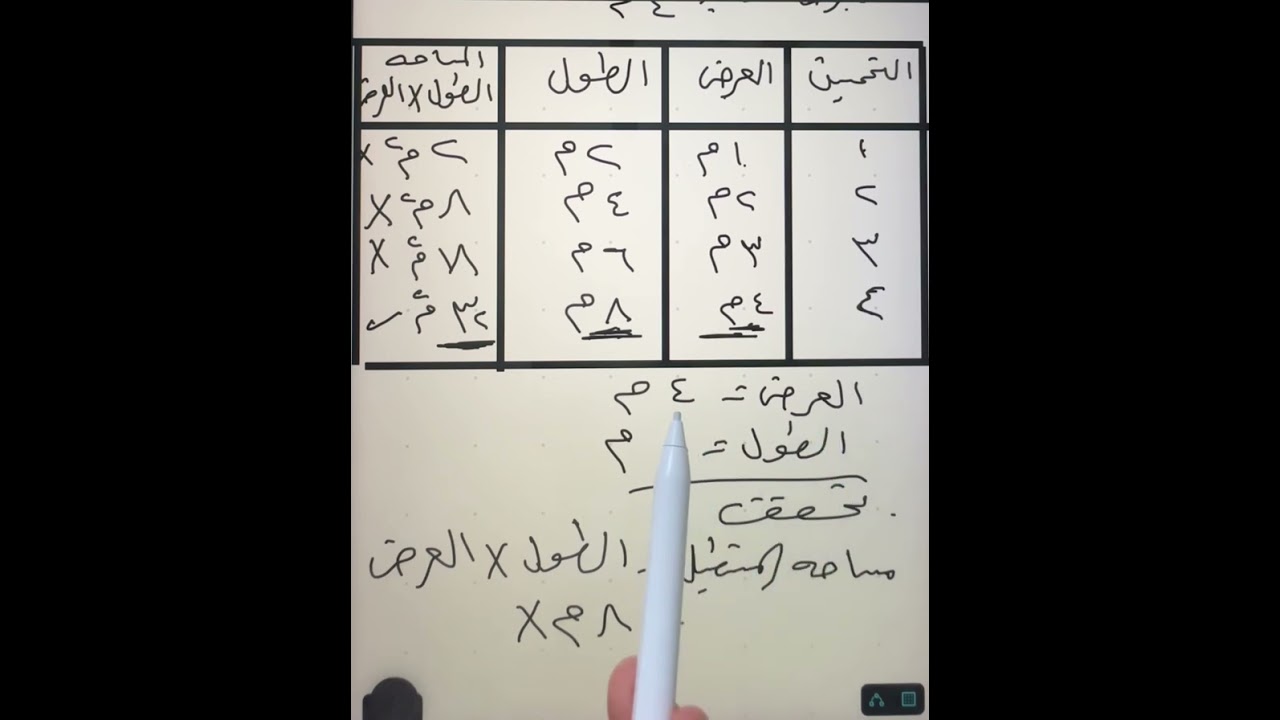 التخمين العرض الطول المساحه الطول × العرض
١ ١ م ٢ م ٢ م٢ ×
٢ ٢ م ٤ م ٨ م٢ ×
٣ ٣ م ٦ م ١٨ م٢ ×
٤ ٤ م ٨ م ٣٢ م٢ ✓
العرض = ٤ م
الطول = م
تحققت
مساحه المستطيل الطول × العرض
٨ م ×